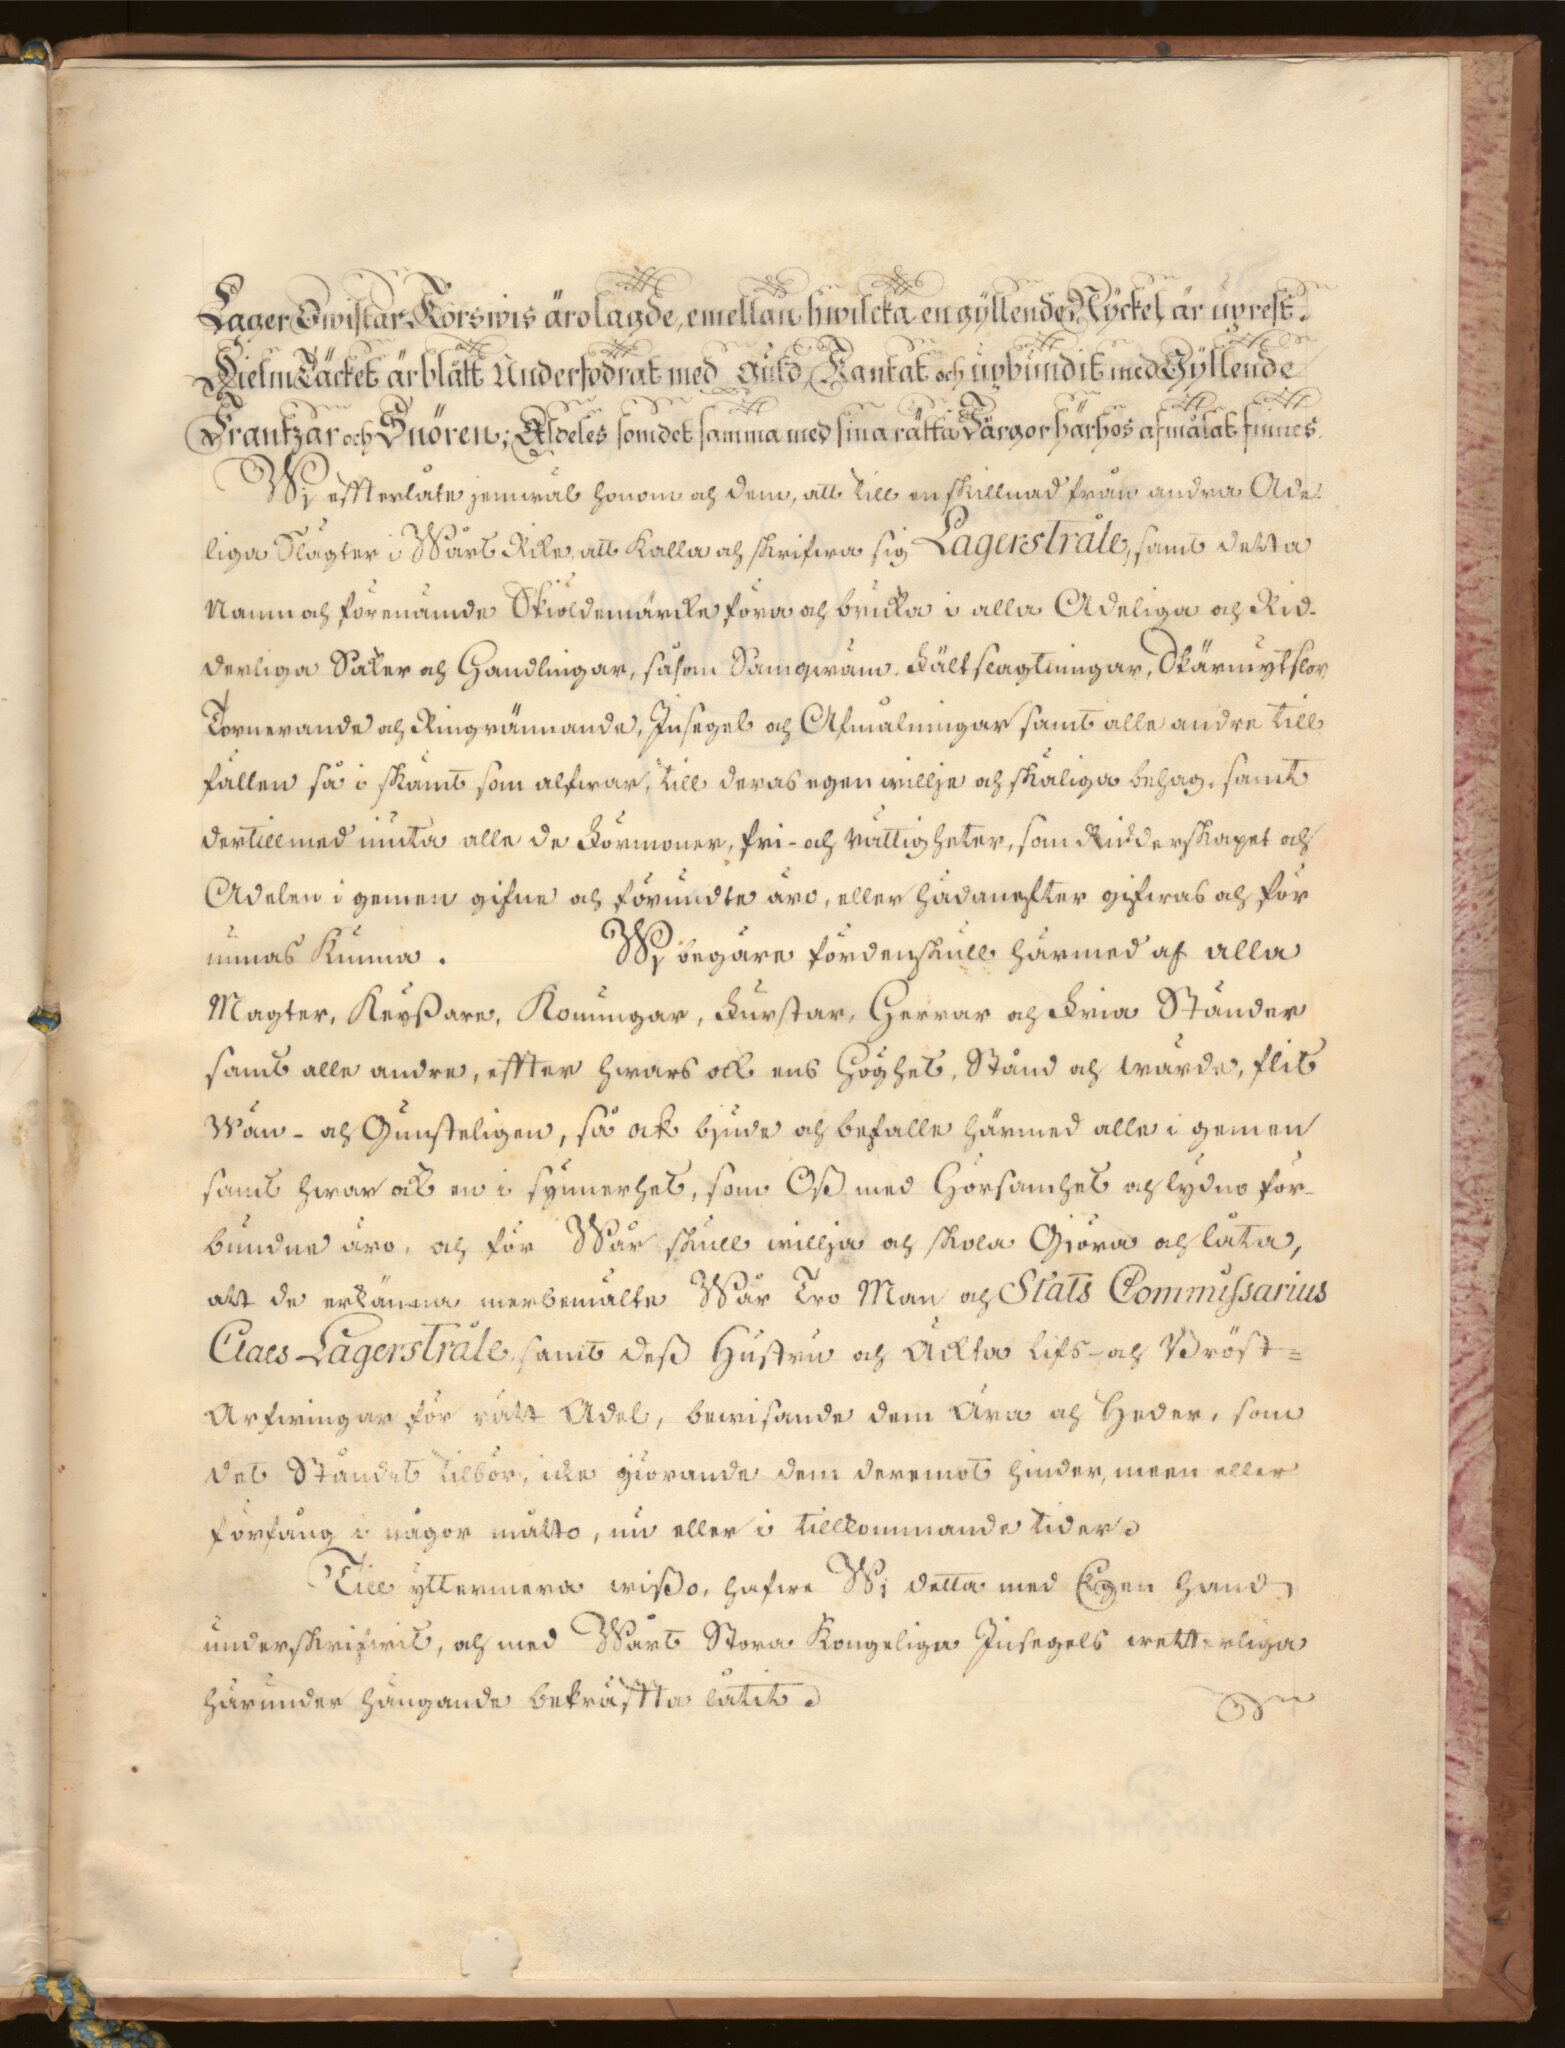 Lager Qwistar Korswis äro lagde, emellan hwilcka en gyllende Nyckel är uprest.
Hielm Täcket är blått Underfodrat med Guld, Kantat och upbundit med Gyllende
Frantzar och Snören; Aldeles som det samma med sina rätta Färgor härhos afmålat finnes.
Wj effterlåte jemwäl honom och dem, att till en skillnad från andra Ade-
liga Slägter i Wårt Rike, att Kalla och skrifwa sig Lagerstråle, samt detta
Namn och förenämde Skiöldemärcke föra och bruka i alla Adeliga och Rid-
derliga Saker och Handlingar, såsom Samqwäm, Fältslagtningar, Skärmytslor
Tornerande och Ringrännande, Insegel och Afmålningar samt alle andre till
fällen så i skämt som alfwar, till deras egen willje och skäliga behag, samt
dertillmed niuta alle de Förmoner, fri- och rättigheter, som Ridderskapet och
Adelen i gemen gifne och förundte äro, eller hädanefter gifwas och för
unnas Kunna. Wj begäre fördenskull härmed af alla
Magter, Keyßare, Konungar, Furstar, Herrar och Fria Ständer
samt alle andre, effter hwars ock ens Höghet, Stånd och wärde, flit
Wän- och Gunsteligen, så ock bjude och befalle härmed alle i gemen
samt hwar ock en i synnerhet, som Oß med Hörsamhet och lydno för-
bundne äro, och för Wår skull willja och skola Giöra och låta,
att de erkänna merbemälte Wår Tro Man och Stats Commissarius
Claes Lagerstråle, samt deß Hustru och Äckta Lifs- och Bröst=
Arfwingar för rätt Adel, bewisande dem Ära och Heder, som
det Ståndet tillbör, icke giörande dem deremot hinder, meen eller
förfång i någor måtto, nu eller i tillkommande tider.
Till yttermera wißo, hafwe Wj detta med Egen hand
underskrifwit, och med Wårt Stora Kongeliga Insegels wetterliga
härunder hängande bekräffta låtit.